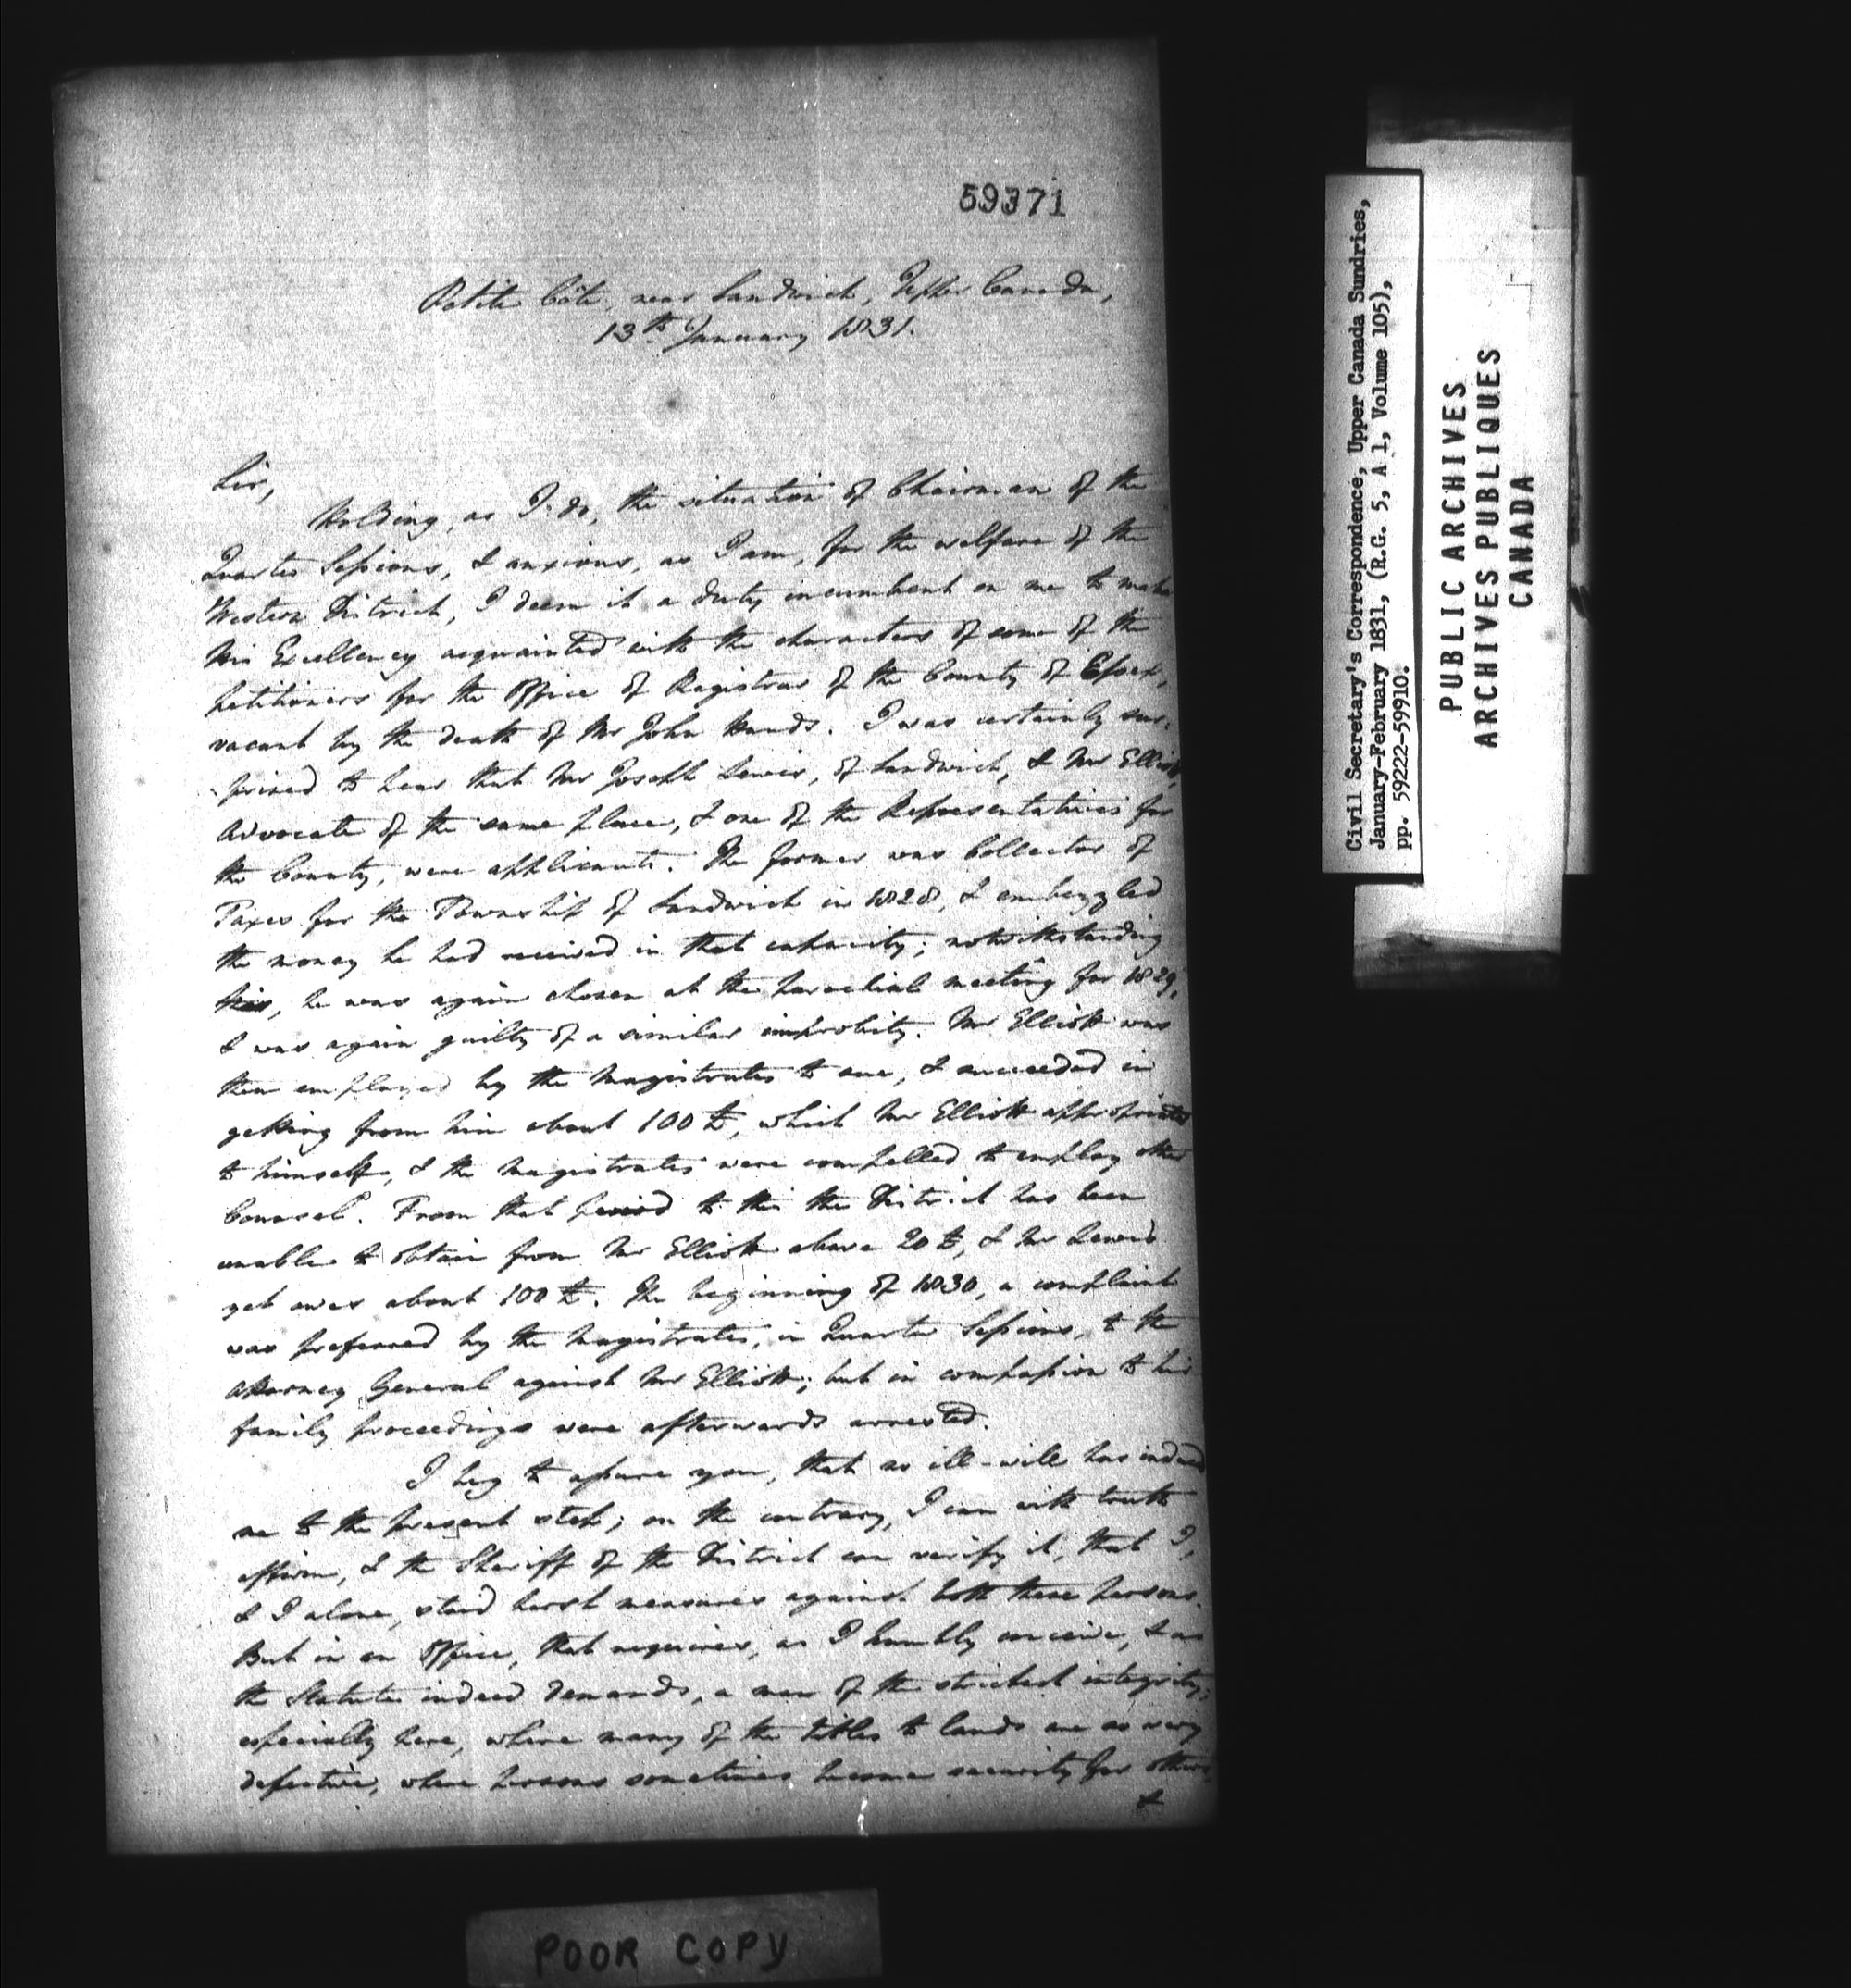 59371
Petite Côte, near Sandwich, Upper Canada,
13th January 1831.
Sir,
Holding, as I do, the situation of Chairman of the
Quarter Sessions, & anxious, as I am, for the welfare of the
Western District, I deem it a duty incumbent on me to make
His Excellency acquainted with the characters of some of the
petitioners for the Office of Registrar of the County of Essex,
vacant by the death of Mr John Hands. I was certainly sur-
-prised to hear that Mr Joseph Lewis, of Sandwich, & Mr Elliott,
Advocate of the same place, & one of the Representatives for
the County, were applicants. The former was Collector of
Taxes for the Township of Sandwich in 1828, & embezzled
the money he had received in that capacity; notwithstanding
this, he was again chosen at the parochial meeting for 1829,
& was again guilty of a similar improbity. Mr Elliott was
then employed by the Magistrates to sue, & succeeded in
getting from him about 100 £, which Mr Elliott appropriated
to himself, & the Magistrates were compelled to employ other
Counsel. From that period to this the District has been
unable to obtain from Mr Elliott above 20 £, & Mr Lewis
yet owes about 100 £. The beginning of 1830, a complaint
was preferred by the Magistrates, in Quarter Sessions, to the
Attorney General against Mr Elliott; but in compassion to his
family proceedings were afterwards arrested.
I beg to assure you, that no ill-will has induced
me to the present step; on the contrary, I can with truth
affirm, & the Sheriff of the District can verify it, that I,
& I alone, staid harsh measures against both these persons.
But in an Office, that requires, as I humbly conceive, & as
the Statute indeed demands, a man of the strictest integrity;
especially here, where many of the titles to lands are so very
defective, where persons sometimes become security for others
&
Civil Secretary's Correspondence, Upper Canada Sundries,
January-February 1831, (R.G. 5, A 1, Volume 105),
pp. 59222-59910.
PUBLIC ARCHIVES
ARCHIVES PUBLIQUES
CANADA
POOR COPY